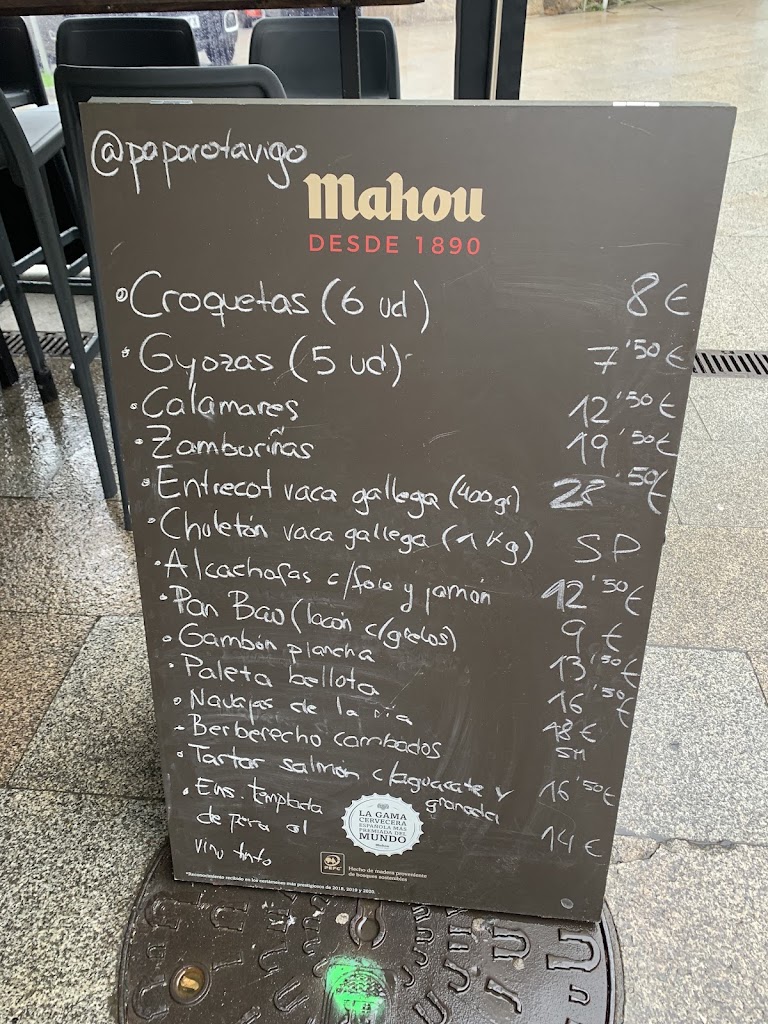 @paparotavigo
Mahou
DESDE 1890
Croquetas (6 ud) 8 €
Gyozas (5 ud) 7'50 €
Calamares 12'50 €
Zamburiñas 19'50 €
Entrecot vaca gallega (400 gr) 28'50 €
Chuletón vaca gallega (1 Kg) SP
Alcachofas c/foie y jamón 12'50 €
Pan Bao (lacón c/grelos) 9 €
Gambón plancha 13'50 €
Paleta bellota 16'50 €
Navajas de la ria 18 €
Berberecho cambados SM
Tartar salmón c/aguacate y 16'50 €
granada
Ens. templada
de pera al 14 €
vino tinto
LA GAMA
CERVECERA
ESPAÑOLA MÁS
PREMIADA DEL
MUNDO
PEFC
Hecho de madera proveniente
de bosques sostenibles
*Reconocimiento recibido en los certámenes más prestigiosos de 2018, 2019 y 2020.